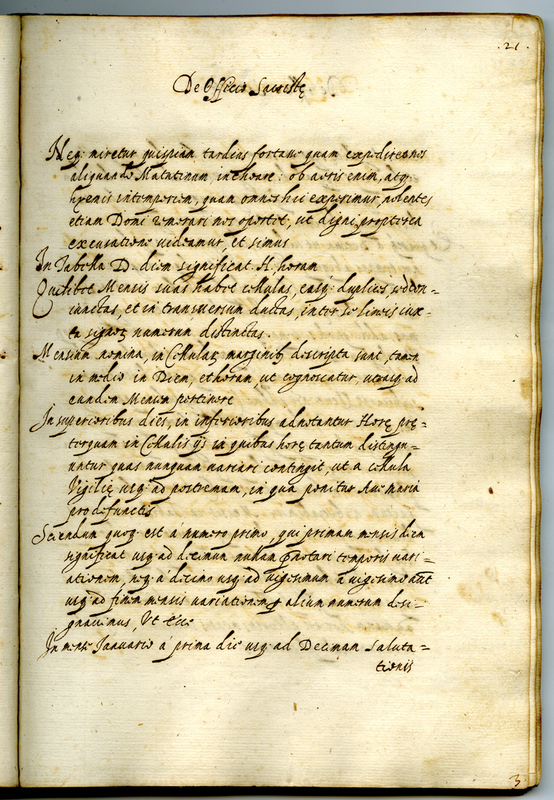 .21.
De Officio Sacristę
Neq; miretur quispiam tardius fortasse quam expediret nos
aliquando Matutinum inchoare: ob aeris enim, atq;
hyemis intemperiem, quam omnes hic experimur, volentes
etiam Domi remorari nos oportet, ut digni propterea
excusatione videamur, et simus
In Tabella D. diem significat H. horam
Quilibet Mensis suas habet cellulas, easq; duplices, sed con-
iunctas, et in transversum ductas, inter se lineis iux-
ta signor numerum distinctas.
Mensium nomina, in Cellular marginib; descripta sunt, tamen
in medio in Diem, et horam ut cognoscatur, utrasq; ad
eundem Mensem pertinere
In superioribus dies, in inferioribus adnotantur Horę prę-
terquam in Cellulis ijs in quibus horę tantum distingu-
untur quas nunquam variari contingit, ut a cellula
Vigilię usq; ad postremam, in qua ponitur Ave maria
pro defunctis
Sciendum quoq; est a numero primo, qui primam mensis diem
significat usq; ad decimum nullam notari temporis vari-
ationem, neq; á decimo usq; ad vigesimum a vigesimo aut
usq; ad finem mensis variationem alium numerum desi-
gnavimus, Ut Ecce
In mense Ianuario á prima die usq; ad Decimam Saluta-
tionis
3